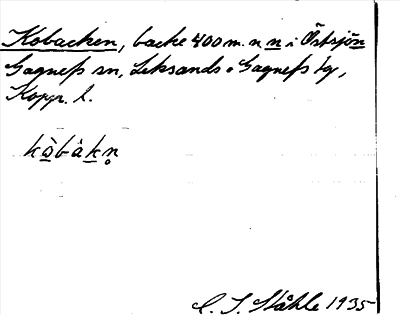 Kobacken, backe 400 m. n n i Östsjön
Gagnefs sn, Leksands o Gagnefs tg,
Koppr. l.
kòbàkn̥
C. I. Ståhle 1935